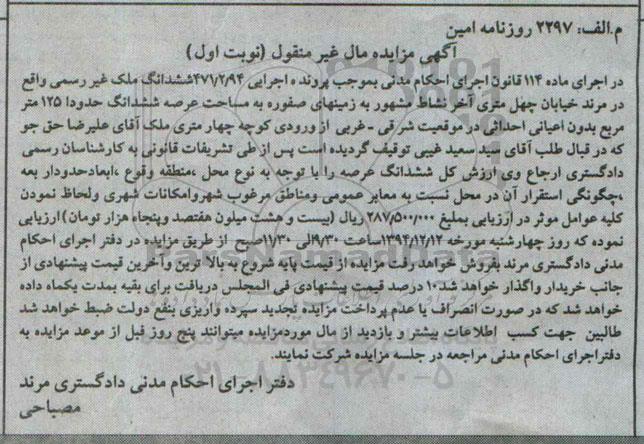 م.الف: ۲۲۹۷ روزنامه امین
آگهی مزایده مال غیر منقول (نوبت اول)
در اجرای ماده ۱۱۴ قانون اجرای احکام مدنی بموجب پرونده اجرایی ۴۷۱/۲/۹۴ ششدانگ ملک غیر رسمی واقع
در مرند خیابان چهل متری آخر نشاط مشهور به زمینهای صفوره به مساحت عرصه ششدانگ حدودا ۱۲۵ متر
مربع بدون اعیانی احداثی در موقعیت شرقی - غربی از ورودی کوچه چهار متری ملک آقای علیرضا حق جو
که در قبال طلب آقای سید سعید غیبی توقیف گردیده است پس از طی تشریفات قانونی به کارشناسان رسمی
دادگستری ارجاع وی ارزش کل ششدانگ عرصه را با توجه به نوع محل ،منطقه وقوع ،ابعادحدودار بعه
،چگونگی استقرار آن در محل نسبت به معابر عمومی ومناطق مرغوب شهروامکانات شهری ولحاظ نمودن
کلیه عوامل موثر در ارزیابی بمبلغ ۲۸۷/۵۰۰/۰۰۰ ریال (بیست و هشت میلون هفتصد وپنجاه هزار تومان) ارزیابی
نموده که روز چهارشنبه مورخه ۱۳۹۴/۱۲/۱۲ساعت ۹/۳۰الی ۱۱/۳۰صبح از طریق مزایده در دفتر اجرای احکام
مدنی دادگستری مرند بفروش خواهد رفت مزایده از قیمت پایه شروع به بالا ترین وآخرین قیمت پیشنهادی از
جانب خریدار واگذار خواهد شد۱۰ درصد قیمت پیشنهادی فی المجلس دریافت برای بقیه بمدت یکماه داده
خواهد شد که در صورت انصراف یا عدم پرداخت مزایده تجدید سپرده واریزی بنفع دولت ضبط خواهد شد
طالبین جهت کسب اطلاعات بیشتر و بازدید از مال موردمزایده میتوانند پنج روز قبل از موعد مزایده به
دفتراجرای احکام مدنی مراجعه در جلسه مزایده شرکت نمایند.
دفتر اجرای احکام مدنی دادگستری مرند
مصباحی
ParsNamadData
۰۲۱-۸۸۳۴۹۶۷۰-۵